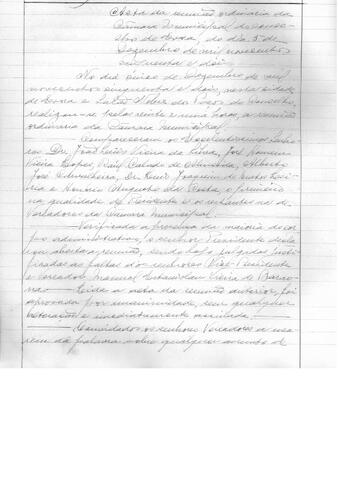 Acta da reunião ordinaria da
Câmara Municipal do
do dia 5 de
Dezembro de mil novecentos
cincoenta e dois
No dia cinco de Dezembro de mil
novecentos cincoenta e dois, nesta cidade
de e Salão Nobre dos Paços do Concelho,
realizou-se pelas vinte e uma horas, a reunião
ordinaria da Camara Municipal.
Compareceram os Senhores
Dr. Vieira da Silva, José
Vieira Lopes, Raul de Alberto
José Dr. Joaquim de Matos
e Honorio Augusto da Costa, o primeiro
na qualidade de Presidente e os restantes na de
Vereadores da Camara Municipal.
Verificada a presença da maioria do cor
po administrativo, o senhor Presidente decla
rou aberta a reunião, sendo julgadas justi
ficadas as faltas dos senhores Vice-Presidente
e vereador Manuel Vieira de
Lida a acta da reunião anterior, foi
aprovada por unanimidade, sem qualquer
alteração e imediatamente assinada
Convidados os senhores Vereadores a usa
rem da palavra sobre qualquer assunto de